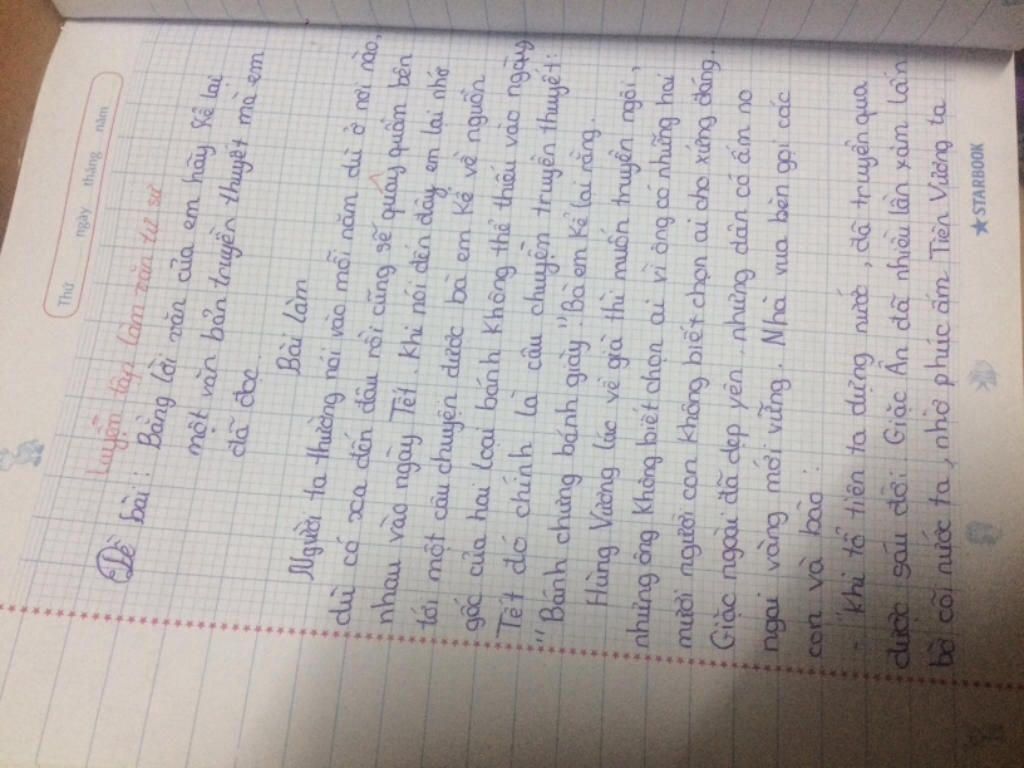 Thứ ngày tháng năm
Luyện tập làm văn tự sự
Đề bài: Bằng lời văn của em hãy kể lại
một văn bản truyền thuyết mà em
đã đọc.
Bài làm
Người ta thường nói vào mỗi năm dù ở nơi nào,
dù có xa đến đâu rồi cũng sẽ quây quồn bên
nhau vào ngày Tết. Khi nói đến đây em lại nhớ
tới một câu chuyện được bà em kể về nguồn
gốc của hai loại bánh không thể thiếu vào ngày
Tết đó chính là câu chuyện truyền thuyết:
"Bánh chưng bánh giày". Bà em kể lại rằng.
Hùng Vương lúc về già thì muốn truyền ngôi,
nhưng ông không biết chọn ai vì ông có những hai
mươi người con không biết chọn ai cho xứng đáng.
Giặc ngoài đã dẹp yên, nhưng dân có ấm no
ngai vàng mới vững. Nhà vua bèn gọi các
con và bảo:
- "Khi tổ tiên ta dựng nước, đã truyền qua
được sáu đời. Giặc Ân đã nhiều lần xâm lấn
bờ cõi nước ta, nhờ phúc ấm Tiên Vương ta
STARBOOK